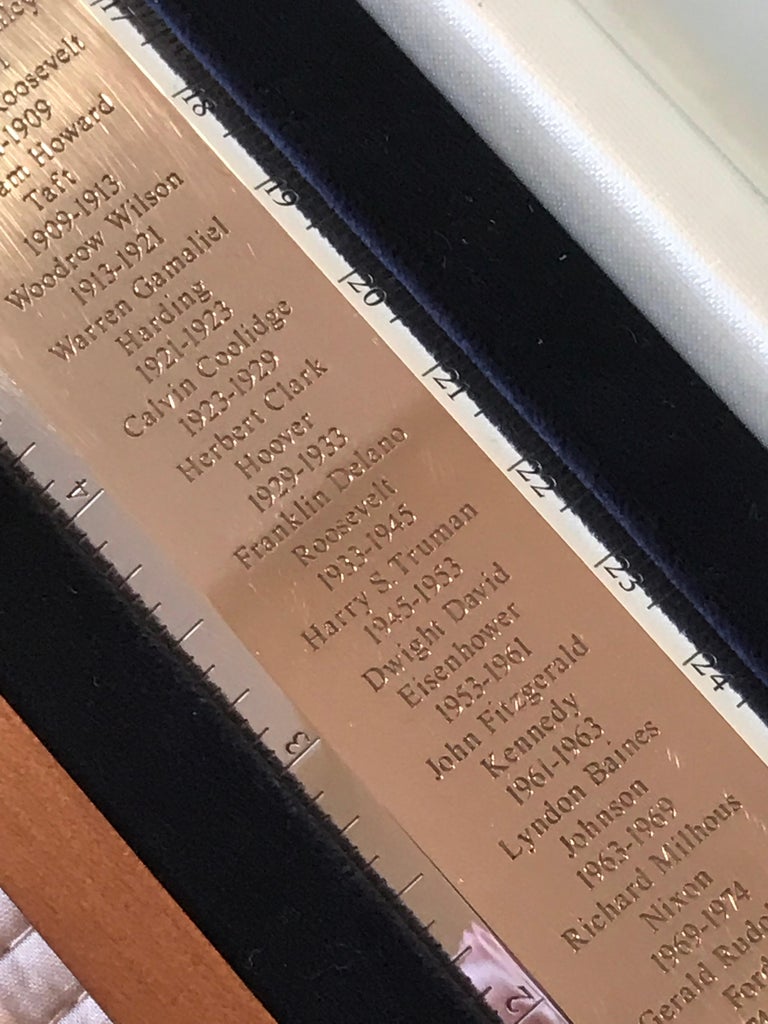 Roosevelt
-1909
Howard
Taft
1909-1913
Woodrow Wilson
1913-1921
Warren Gamaliel
Harding
1921-1923
Calvin Coolidge
1923-1929
Herbert Clark
Hoover
1929-1933
Franklin Delano
Roosevelt
1933-1945
Harry S. Truman
1945-1953
Dwight David
Eisenhower
1953-1961
John Fitzgerald
Kennedy
1961-1963
Lyndon Baines
Johnson
1963-1969
Richard Milhous
Nixon
1969-1974
Gerald
Ford
18
19
20
21
22
23
24
4
3
2